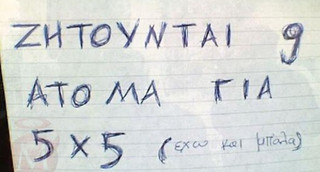 ΖΗΤΟΥΝΤΑΙ 9
ΑΤΟΜΑ ΓΙΑ
5 x 5 (εχω και μπαλα)